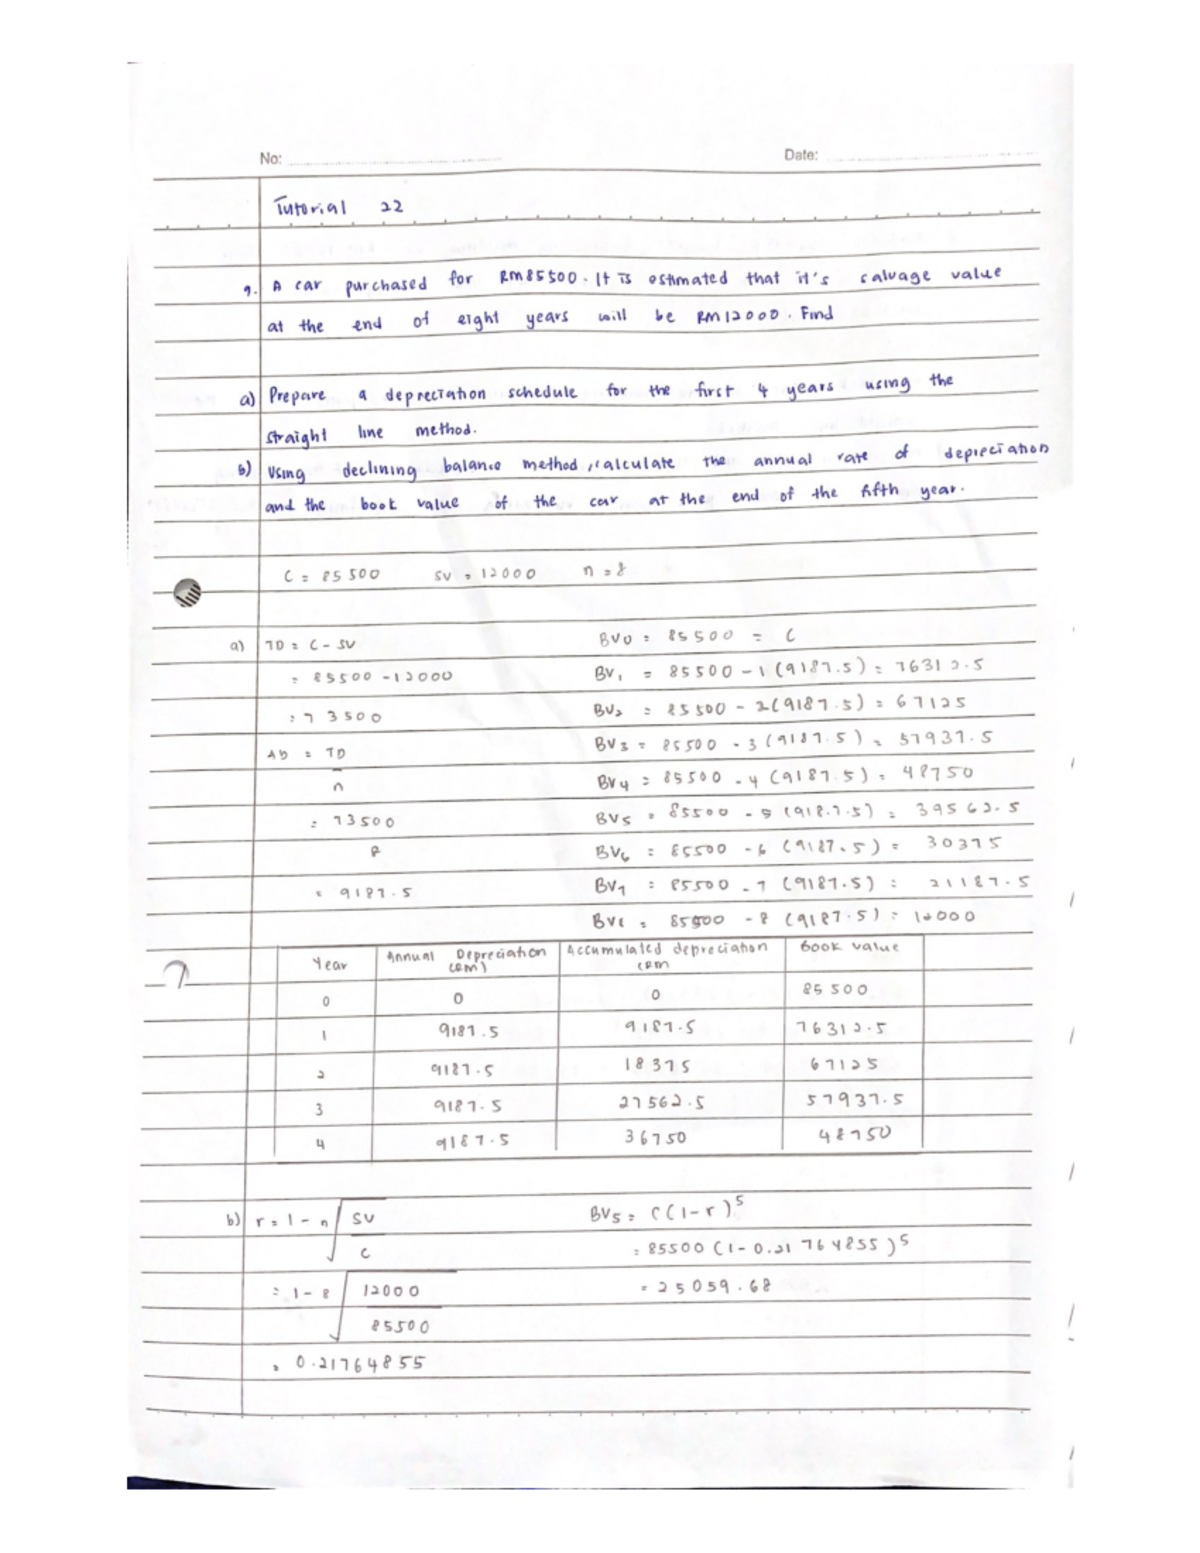 No:
Date:
Tutorial 22
9. A car purchased for RM85500. It is estimated that it's salvage value
at the end of eight years will be RM12000. Find
a) Prepare a depreciation schedule for the first 4 years using the
straight line method.
b) Using declining balance method, calculate the annual rate of depreciation
and the book value of the car at the end of the fifth year.
C = 85500 SV = 12000 n = 8
a) TD = C - SV
= 85500 - 12000
= 73500
AD = TD
n
= 73500
8
= 9187.5
BV0 = 85500 = C
BV1 = 85500 - 1 (9187.5) = 76312.5
BV2 = 85500 - 2(9187.5) = 67125
BV3 = 85500 - 3 (9187.5) = 57937.5
BV4 = 85500 - 4 (9187.5) = 48750
BV5 = 85500 - 5 (9187.5) = 39562.5
BV6 = 85500 - 6 (9187.5) = 30375
BV7 = 85500 - 7 (9187.5) = 21187.5
BV8 = 85500 - 8 (9187.5) = 12000
Year Annual Depreciation (RM) Accumulated depreciation (RM Book value
0 0 0 85500
1 9187.5 9187.5 76312.5
2 9187.5 18375 67125
3 9187.5 27562.5 57937.5
4 9187.5 36750 48750
b) r = 1 - n√ SV
C
= 1 - 8√ 12000
85500
= 0.21764855
BV5 = C(1-r)⁵
= 85500 (1 - 0.21764855)⁵
= 25059.68